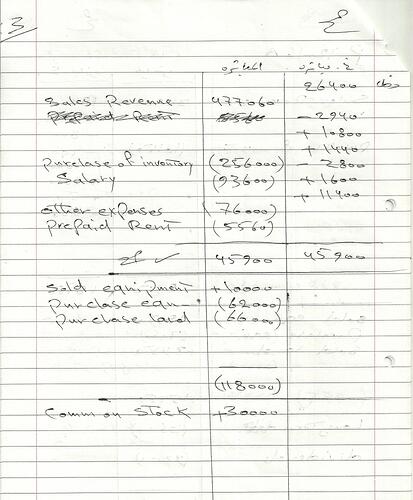 3
ع
المباشرة غ. مباشرة
26400
Sales Revenue 477060 - 2940
+ 10800
+ 1440
purchase of inventory (256000) - 2800
Salary (93600) + 1600
+ 11400
other expenses (76000)
prepaid Rent (5560)
45900 45900
Sold equipment +10000
purchase equ- (62000)
purchase land (66000)
(118000)
Common Stock +30000